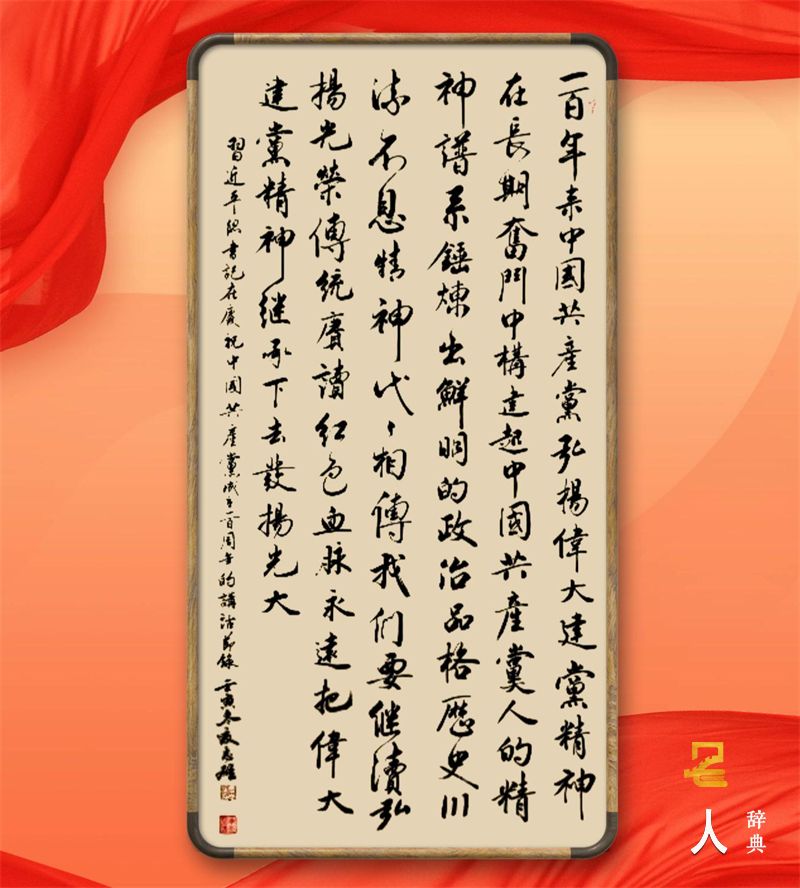 一百年来中國共產黨弘揚偉大建黨精神
在長期奮鬥中構建起中國共產黨人的精
神譜系錘煉出鮮明的政治品格歷史川
流不息精神代々相傳我們要继續弘
揚光榮傳統賡續紅色血脉永遠把偉大
建黨精神继承下去發揚光大
習近平總書記在慶祝中國共產黨成立一百周年的講話節錄 壬寅冬
名人
辞典